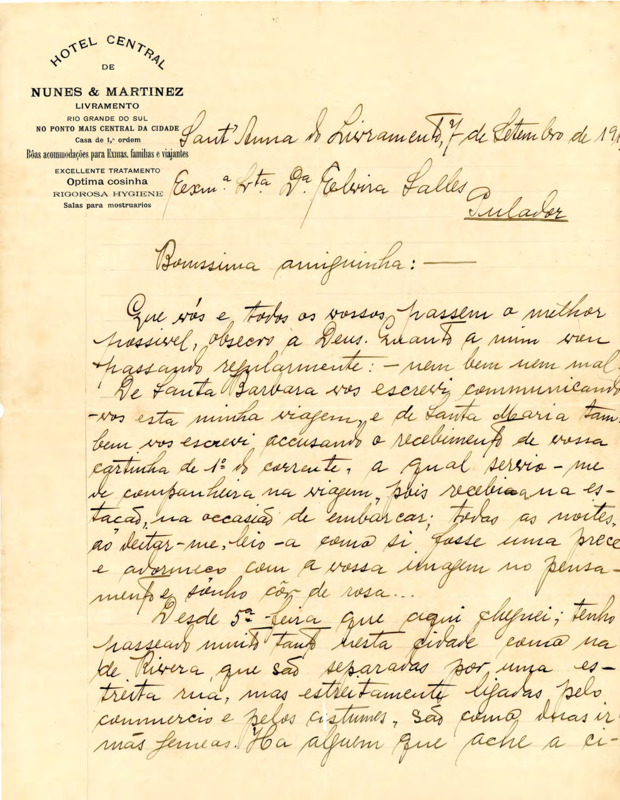 HOTEL CENTRAL
DE
NUNES & MARTINEZ
LIVRAMENTO
RIO GRANDE DO SUL
NO PONTO MAIS CENTRAL DA CIDADE
Casa de 1.ª ordem
Bôas acommodações para Exmas. familias e viajantes
EXCELLENTE TRATAMENTO
Optima cosinha
RIGOROSA HYGIENE
Salas para mostruarios
Sant'Anna do Livramento, 7 de Setembro de 191
Exm.ª Srta. Dª Elvira Salles
Pulador
Bonissima amiguinha: —
Que vós e todos os vossos passem o melhor
possivel, obsecro a Deus. Quanto a mim vou
passando regularmente: - nem bem nem mal.
De Santa Barbara vos escrevi communicando
-vos esta minha viagem, e de Santa Maria tam-
bem vos escrevi accusando o recebimento de vossa
cartinha de 1º do corrente, a qual servio-me
de companheira na viagem, pois recebi-a na es-
tação, na occasião de embarcar; todas as noites,
ao deitar-me, leio-a como si fosse uma prece
e adormeço com a vossa imagem no pensa-
mento e sonho côr de rosa...
Desde 5ª feira que aqui cheguei; tenho
passeado muito tanto nesta cidade como na
de Rivera, que são separadas por uma es-
treita rua, mas estreitamente ligadas pelo
commercio e pelos custumes, são como duas ir-
mãs gemeas. Ha alguem que ache a ci-